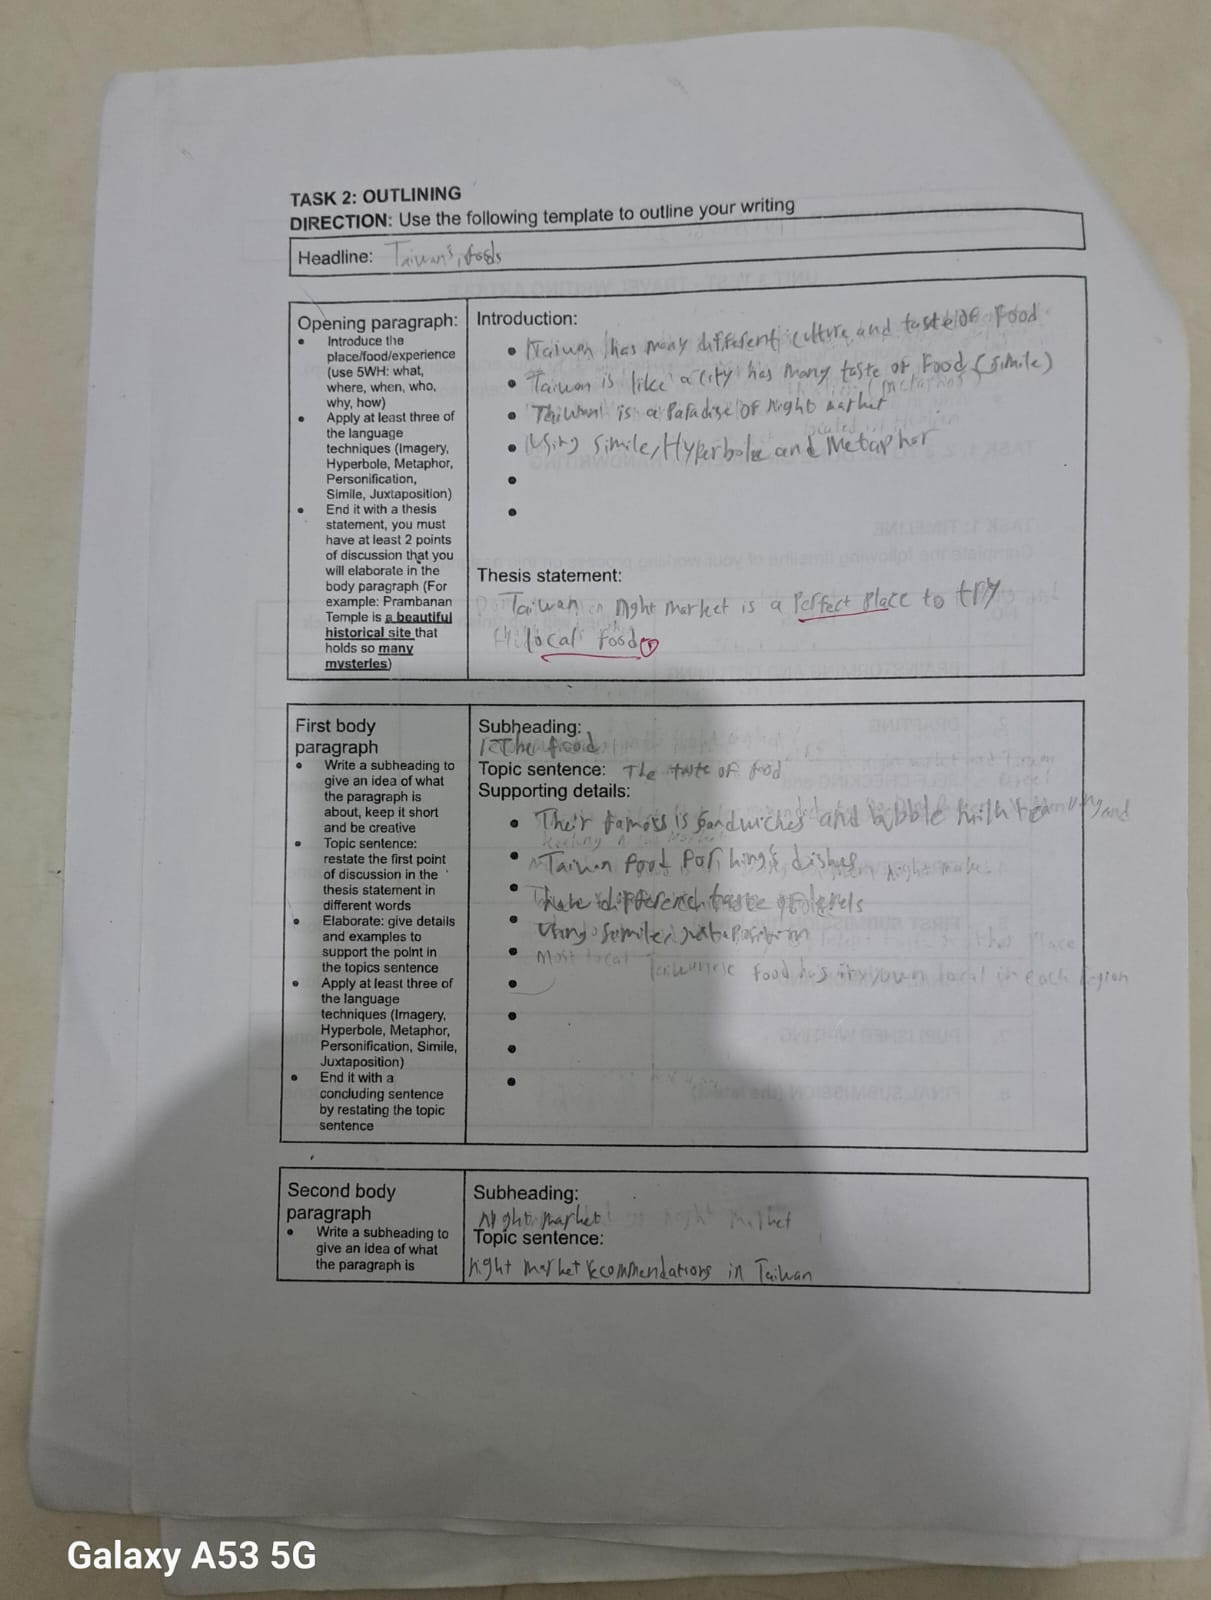 TASK 2: OUTLINING
DIRECTION: Use the following template to outline your writing
Headline: Taiwan's foods
Opening paragraph:
• Introduce the
place/food/experience
(use 5WH: what,
where, when, who,
why, how)
• Apply at least three of
the language
techniques (Imagery,
Hyperbole, Metaphor,
Personification,
Simile, Juxtaposition)
• End it with a thesis
statement, you must
have at least 2 points
of discussion that you
will elaborate in the
body paragraph (For
example: Prambanan
Temple is a beautiful
historical site that
holds so many
mysteries)
Introduction:
• Taiwan has many different culture and taste of Food
• Taiwan is like a city has many taste of Food (simile)
• Taiwan is a Paradise of night market
• Using simile, Hyperbole and Metaphor
Thesis statement:
Taiwan night market is a Perfect Place to try
local food
First body
paragraph
• Write a subheading to
give an idea of what
the paragraph is
about, keep it short
and be creative
• Topic sentence:
restate the first point
of discussion in the
thesis statement in
different words
• Elaborate: give details
and examples to
support the point in
the topics sentence
• Apply at least three of
the language
techniques (Imagery,
Hyperbole, Metaphor,
Personification, Simile,
Juxtaposition)
• End it with a
concluding sentence
by restating the topic
sentence
Subheading:
The food
Topic sentence: The taste of food
Supporting details:
• Their famous is sandwiches and bubble milk tea
• Taiwan food dishes
• different taste
• Using
• Most local food has own local in each region
Second body
paragraph
• Write a subheading to
give an idea of what
the paragraph is
Subheading:
Night market
Topic sentence:
night market recommendations in Taiwan
Galaxy A53 5G